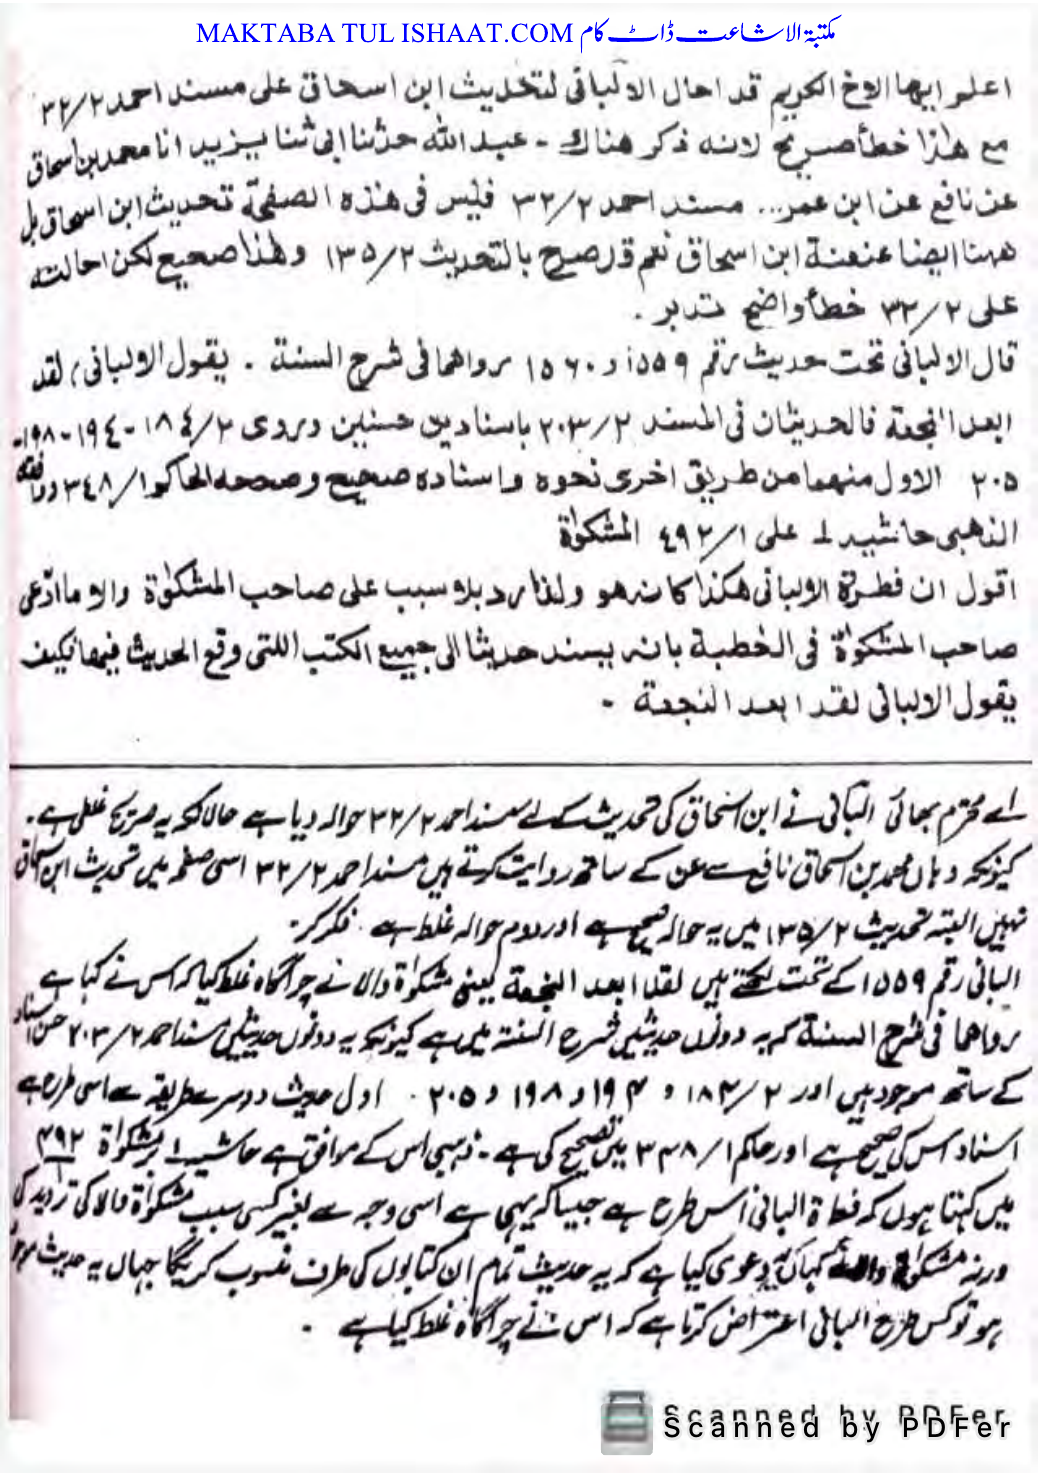 MAKTABA TUL ISHAAT.COM مکتبۃ الاشاعت ڈاٹ کام
اعلم ایہا الاخ الکریم قد احال الالبانی لتحدیث ابن اسحاق علی مسند احمد ۳۲/۲
مع ھٰذا خطأ صریح لانہ ذکر ھناک - عبداللہ حدثنا ابی ثنا یزید انا محمد بن اسحاق
عن نافع عن ابن عمر... مسند احمد ۳۲/۲ فلیس فی ھٰذہ الصفحۃ تحدیث ابن اسحاق بل
ھھنا ایضا عنعنۃ ابن اسحاق نعم قد صرح بالتحدیث ۱۳۵/۲ وھٰذا صحیح لکن احالتہ
علی ۳۲/۲ خطأ واضح تدبر .
قال الالبانی تحت حدیث رقم ۱۵۵۹ و ۱۵۶۰ رواھما فی شرح السنۃ . یقول الالبانی، لقد
ابعد النجعۃ فالحدیثان فی المسند ۲۰۳/۲ باسنادین حسنین وروی ۱۸٤/۲-۱۹٤-۱۹۸-
۲۰۵ الاول منھما من طریق اخری نحوہ واسنادہ صحیح وصححہ الحاکم ۳٤۸/۱ ووافقہ
الذھبی حاشیہ ۱ علی ٤۹۲/۱ المشکوٰۃ
اقول ان فطرۃ الالبانی ھکذا کانہ ھو ولذا رد بلا سبب علی صاحب المشکوٰۃ والا ما ادّعی
صاحب المشکوٰۃ فی الخطبۃ بانہ یسند حدیثا الی جمیع الکتب اللتی وقع الحدیث فیھا فکیف
یقول الالبانی لقد ابعد النجعۃ -
اے محترم بھائی البانی نے ابن اسحاق کی تحدیث کے لئے مسند احمد ۳۲/۲ حوالہ دیا ہے حالانکہ یہ صریح غلطی ہے۔
کیونکہ وہاں محمد بن اسحاق نافع سے عن کے ساتھ روایت کرتے ہیں مسند احمد ۳۲/۲ اسی صفحہ میں تحدیث ابن اسحاق
نہیں البتہ تحدیث ۱۳۵/۲ میں یہ حوالہ صحیح ہے اور دوم حوالہ غلط ہے . فکر کر۔
البانی رقم ۱۵۵۹ کے تحت لکھتے ہیں لقد ابعد النجعۃ یعنی مشکوٰۃ والا نے چراگاہ غلط کیا کہ اس نے کہا ہے
رواھما فی شرح السنۃ کہ یہ دونوں حدیثیں شرح السنۃ میں ہے کیونکہ یہ دونوں حدیثیں مسند احمد ۲۰۳/۲ حسن اسناد
کے ساتھ موجود ہیں اور ۱۸۴/۲ و ۱۹۴ و ۱۹۸ و ۲۰۵ . اول حدیث دوسرے طریقہ سے اسی طرح ہے
اسناد اس کی صحیح ہے اور حاکم ۳۴۸/۱ میں تصحیح کی ہے۔ ذہبی اس کے موافق ہے حاشیہ ۱ بر مشکوٰۃ ۴۹۲/۱
میں کہتا ہوں کہ فطرۃ البانی اس طرح ہے جیسا کہ یہی ہے اسی وجہ سے بغیر کسی سبب مشکوٰۃ والا کی تردید کی
ورنہ مشکوٰۃ والے کہاں یہ دعوی کیا ہے کہ یہ حدیث تمام ان کتابوں کی طرف منسوب کریگا جہاں یہ حدیث موجود
ہو تو کس طرح البانی اعتراض کرتا ہے کہ اس نے چراگاہ غلط کیا ہے ۔
Scanned by PDFer
Scanned by PDFer